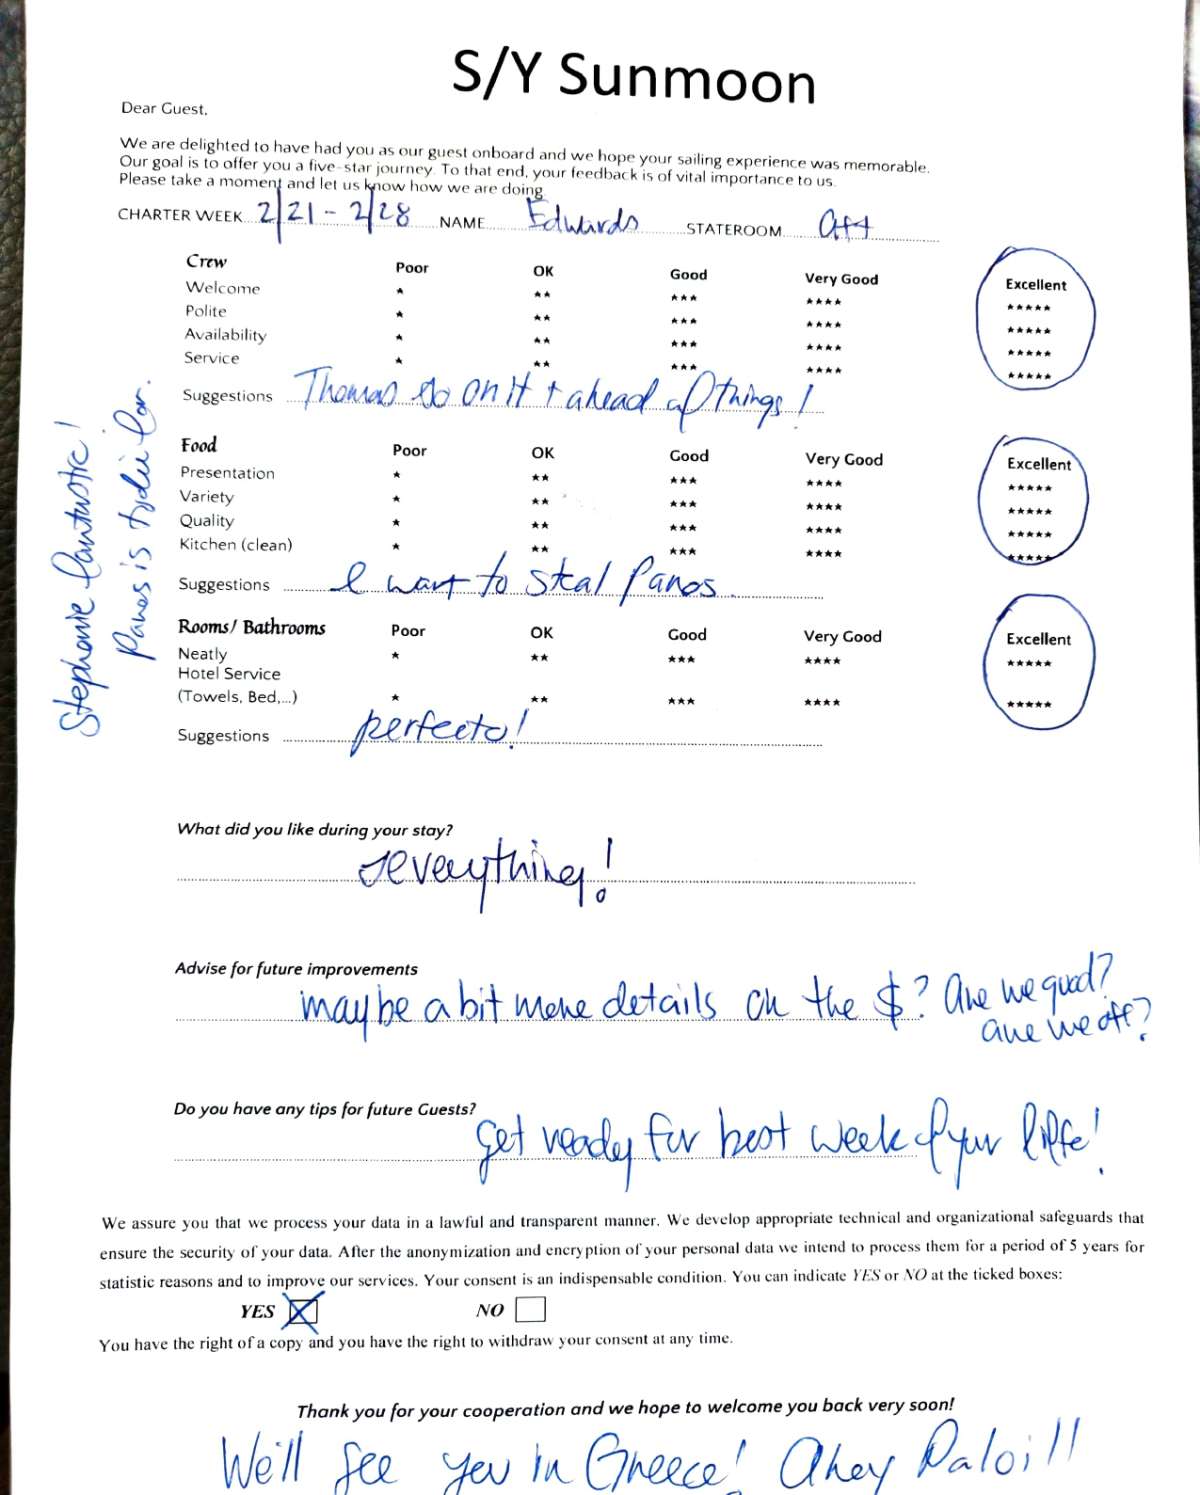 S/Y Sunmoon
Dear Guest,
We are delighted to have had you as our guest onboard and we hope your sailing experience was memorable.
Our goal is to offer you a five-star journey. To that end, your feedback is of vital importance to us.
Please take a moment and let us know how we are doing
CHARTER WEEK 2/21 - 2/28 NAME Edwards STATEROOM Aft
Crew Poor OK Good Very Good Excellent
Welcome * ** *** **** *****
Polite * ** *** **** *****
Availability * ** *** **** *****
Service * ** *** **** *****
Suggestions Thomas so on it + ahead of things!
Food Poor OK Good Very Good Excellent
Presentation * ** *** **** *****
Variety * ** *** **** *****
Quality * ** *** **** *****
Kitchen (clean) * ** *** **** *****
Suggestions I want to steal Panos
Stephanie fantastic!
Panos is
Rooms/ Bathrooms Poor OK Good Very Good Excellent
Neatly * ** *** **** *****
Hotel Service
(Towels, Bed,...) * ** *** **** *****
Suggestions perfecto!
What did you like during your stay?
everything!
Advise for future improvements
maybe a bit more details on the $? Are we good?
are we off?
Do you have any tips for future Guests?
Get ready for best week of your life!
We assure you that we process your data in a lawful and transparent manner. We develop appropriate technical and organizational safeguards that
ensure the security of your data. After the anonymization and encryption of your personal data we intend to process them for a period of 5 years for
statistic reasons and to improve our services. Your consent is an indispensable condition. You can indicate YES or NO at the ticked boxes:
YES X NO
You have the right of a copy and you have the right to withdraw your consent at any time.
Thank you for your cooperation and we hope to welcome you back very soon!
We'll see you in Greece! Ahoy